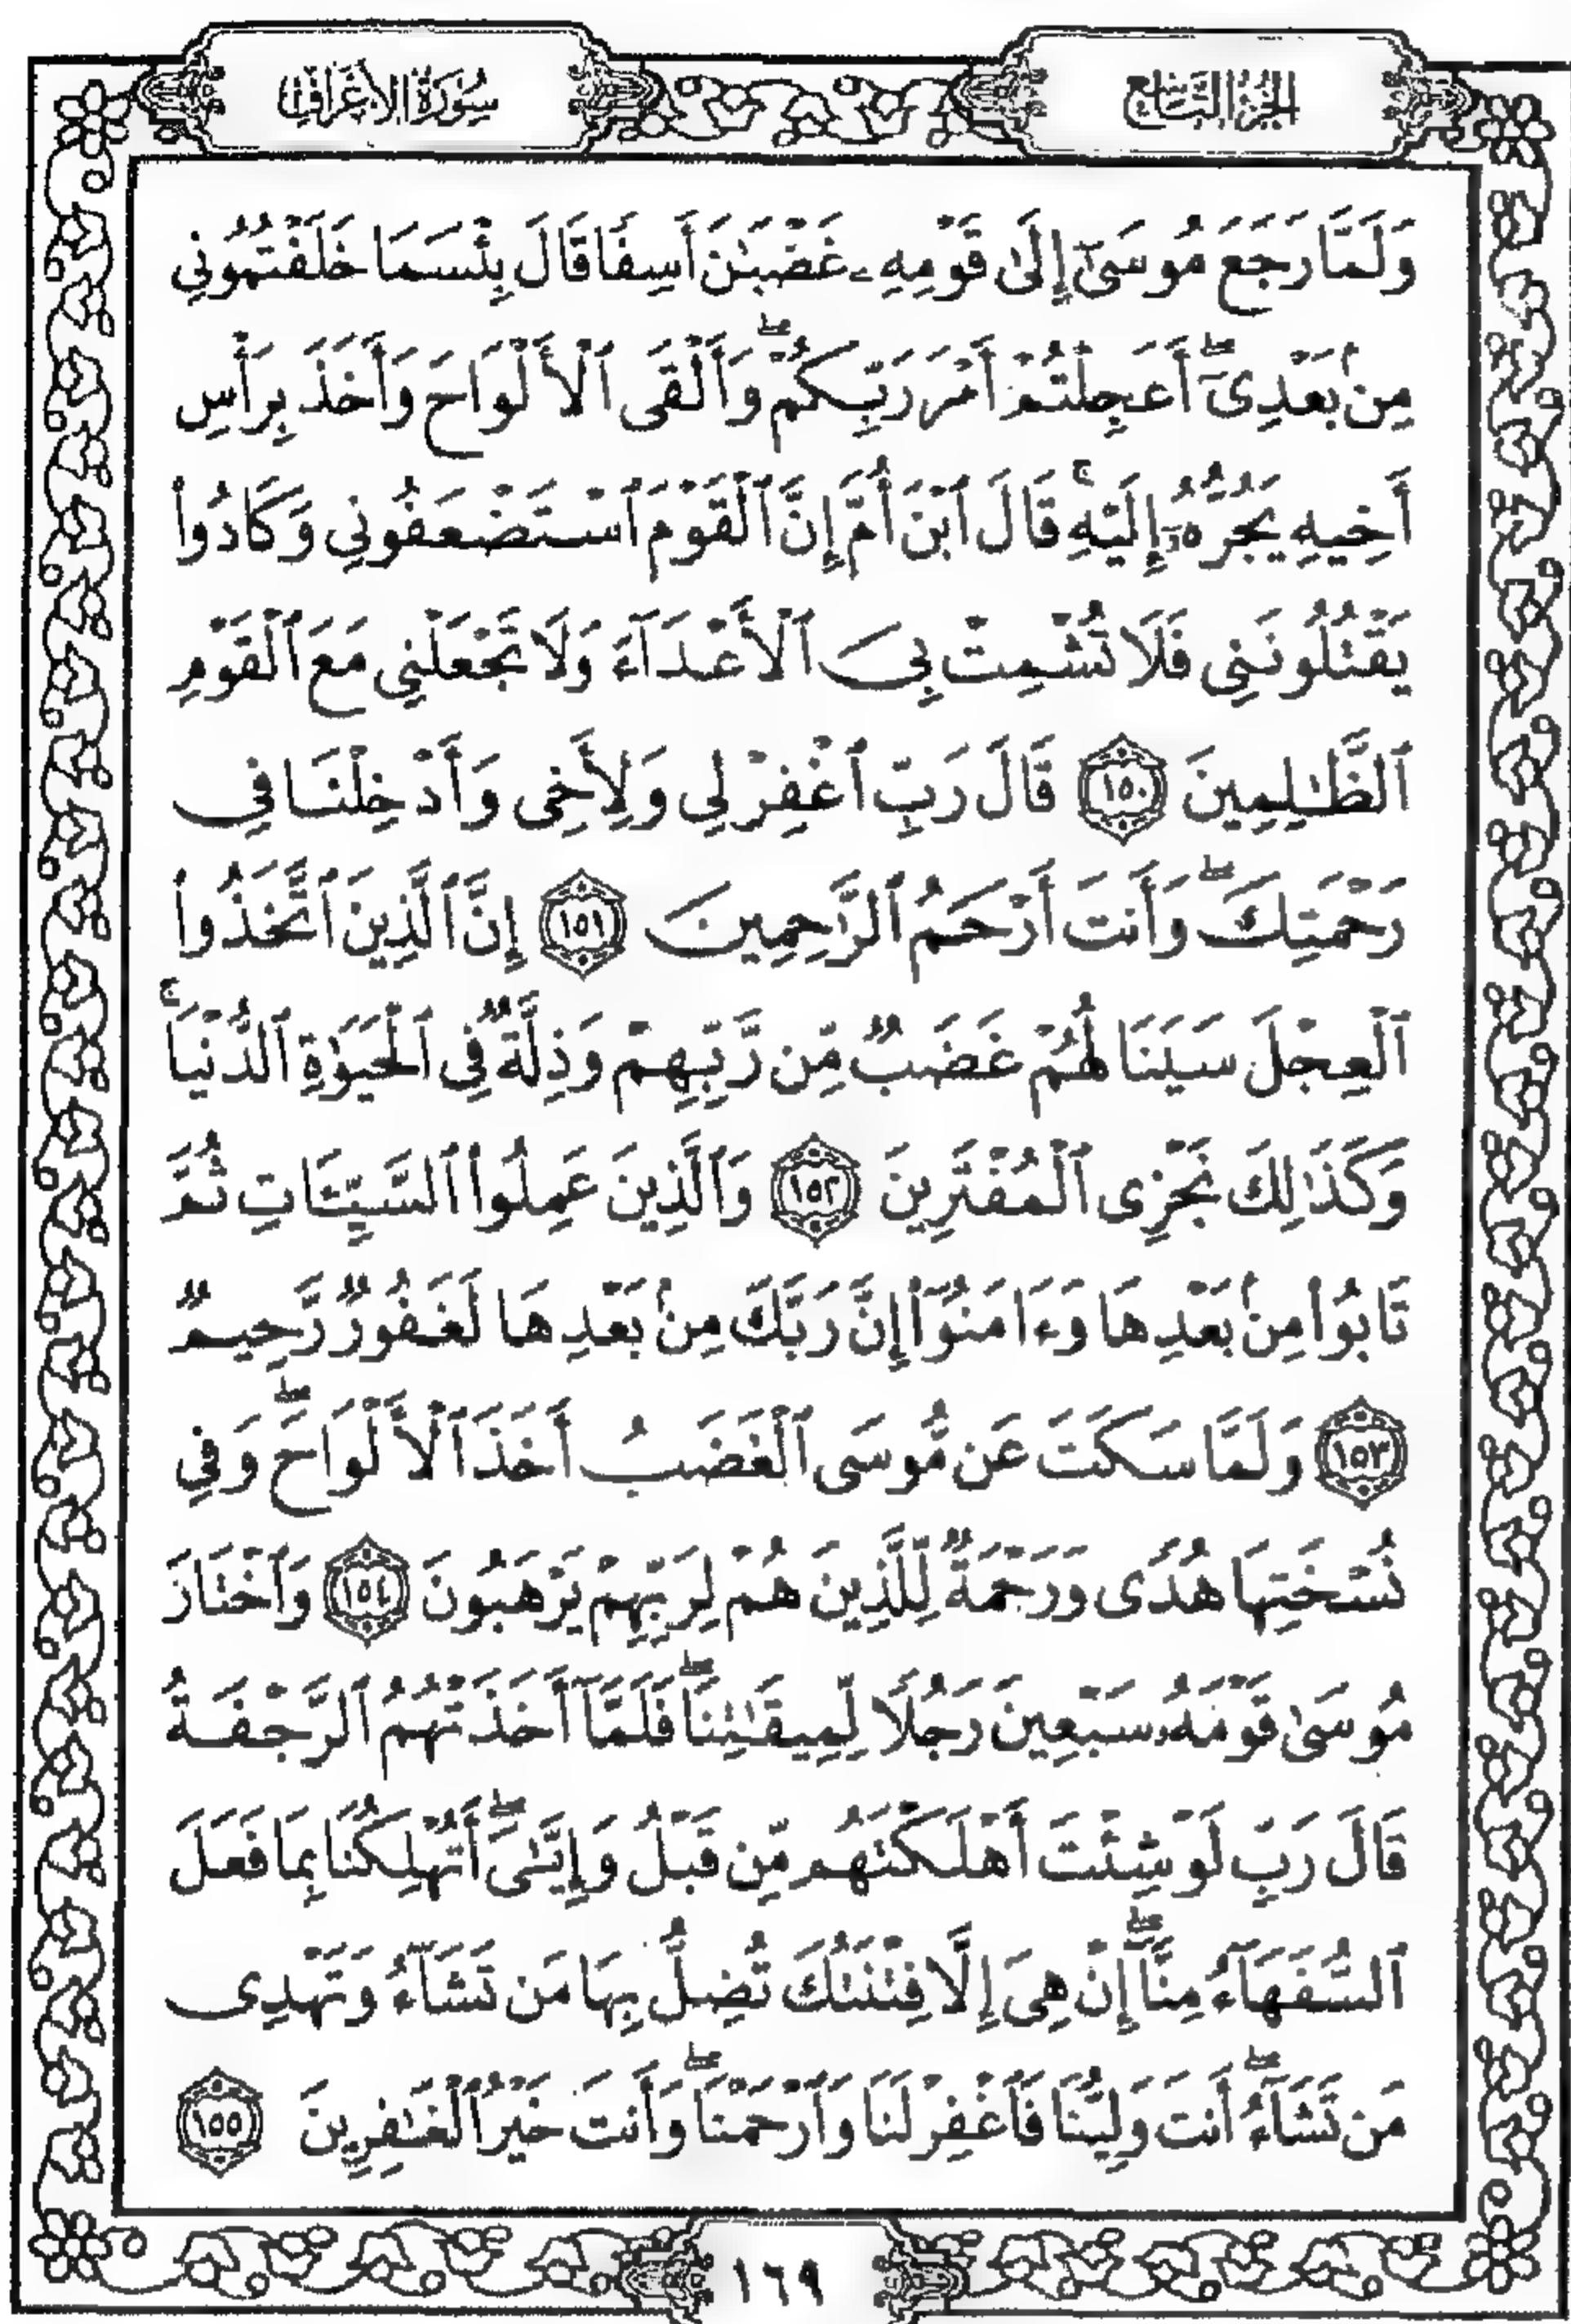 الجزء التاسع
سورة الأعراف
وَلَمَّا رَجَعَ مُوسَىٰٓ إِلَىٰ قَوْمِهِۦ غَضْبَٰنَ أَسِفًا قَالَ بِئْسَمَا خَلَفْتُمُونِي
مِنۢ بَعْدِىٓۖ أَعَجِلْتُمْ أَمْرَ رَبِّكُمْۖ وَأَلْقَى ٱلْأَلْوَاحَ وَأَخَذَ بِرَأْسِ
أَخِيهِ يَجُرُّهُۥٓ إِلَيْهِۚ قَالَ ٱبْنَ أُمَّ إِنَّ ٱلْقَوْمَ ٱسْتَضْعَفُونِي وَكَادُوا۟
يَقْتُلُونَنِي فَلَا تُشْمِتْ بِىَ ٱلْأَعْدَآءَ وَلَا تَجْعَلْنِي مَعَ ٱلْقَوْمِ
ٱلظَّٰلِمِينَ ١٥٠ قَالَ رَبِّ ٱغْفِرْ لِي وَلِأَخِي وَأَدْخِلْنَا فِي
رَحْمَتِكَۖ وَأَنتَ أَرْحَمُ ٱلرَّٰحِمِينَ ١٥١ إِنَّ ٱلَّذِينَ ٱتَّخَذُوا۟
ٱلْعِجْلَ سَيَنَالُهُمْ غَضَبٌ مِّن رَّبِّهِمْ وَذِلَّةٌ فِي ٱلْحَيَوٰةِ ٱلدُّنْيَاۚ
وَكَذَٰلِكَ نَجْزِى ٱلْمُفْتَرِينَ ١٥٢ وَٱلَّذِينَ عَمِلُوا۟ ٱلسَّيِّـَٔاتِ ثُمَّ
تَابُوا۟ مِنۢ بَعْدِهَا وَءَامَنُوٓا۟ إِنَّ رَبَّكَ مِنۢ بَعْدِهَا لَغَفُورٌ رَّحِيمٌ
١٥٣ وَلَمَّا سَكَتَ عَن مُّوسَى ٱلْغَضَبُ أَخَذَ ٱلْأَلْوَاحَۖ وَفِي
نُسْخَتِهَا هُدًى وَرَحْمَةٌ لِّلَّذِينَ هُمْ لِرَبِّهِمْ يَرْهَبُونَ ١٥٤ وَٱخْتَارَ
مُوسَىٰ قَوْمَهُۥ سَبْعِينَ رَجُلًا لِّمِيقَٰتِنَاۖ فَلَمَّآ أَخَذَتْهُمُ ٱلرَّجْفَةُ
قَالَ رَبِّ لَوْ شِئْتَ أَهْلَكْتَهُم مِّن قَبْلُ وَإِيَّٰىَۖ أَتُهْلِكُنَا بِمَا فَعَلَ
ٱلسُّفَهَآءُ مِنَّآۖ إِنْ هِىَ إِلَّا فِتْنَتُكَ تُضِلُّ بِهَا مَن تَشَآءُ وَتَهْدِى
مَن تَشَآءُۖ أَنتَ وَلِيُّنَا فَٱغْفِرْ لَنَا وَٱرْحَمْنَاۖ وَأَنتَ خَيْرُ ٱلْغَٰفِرِينَ ١٥٥
١٦٩